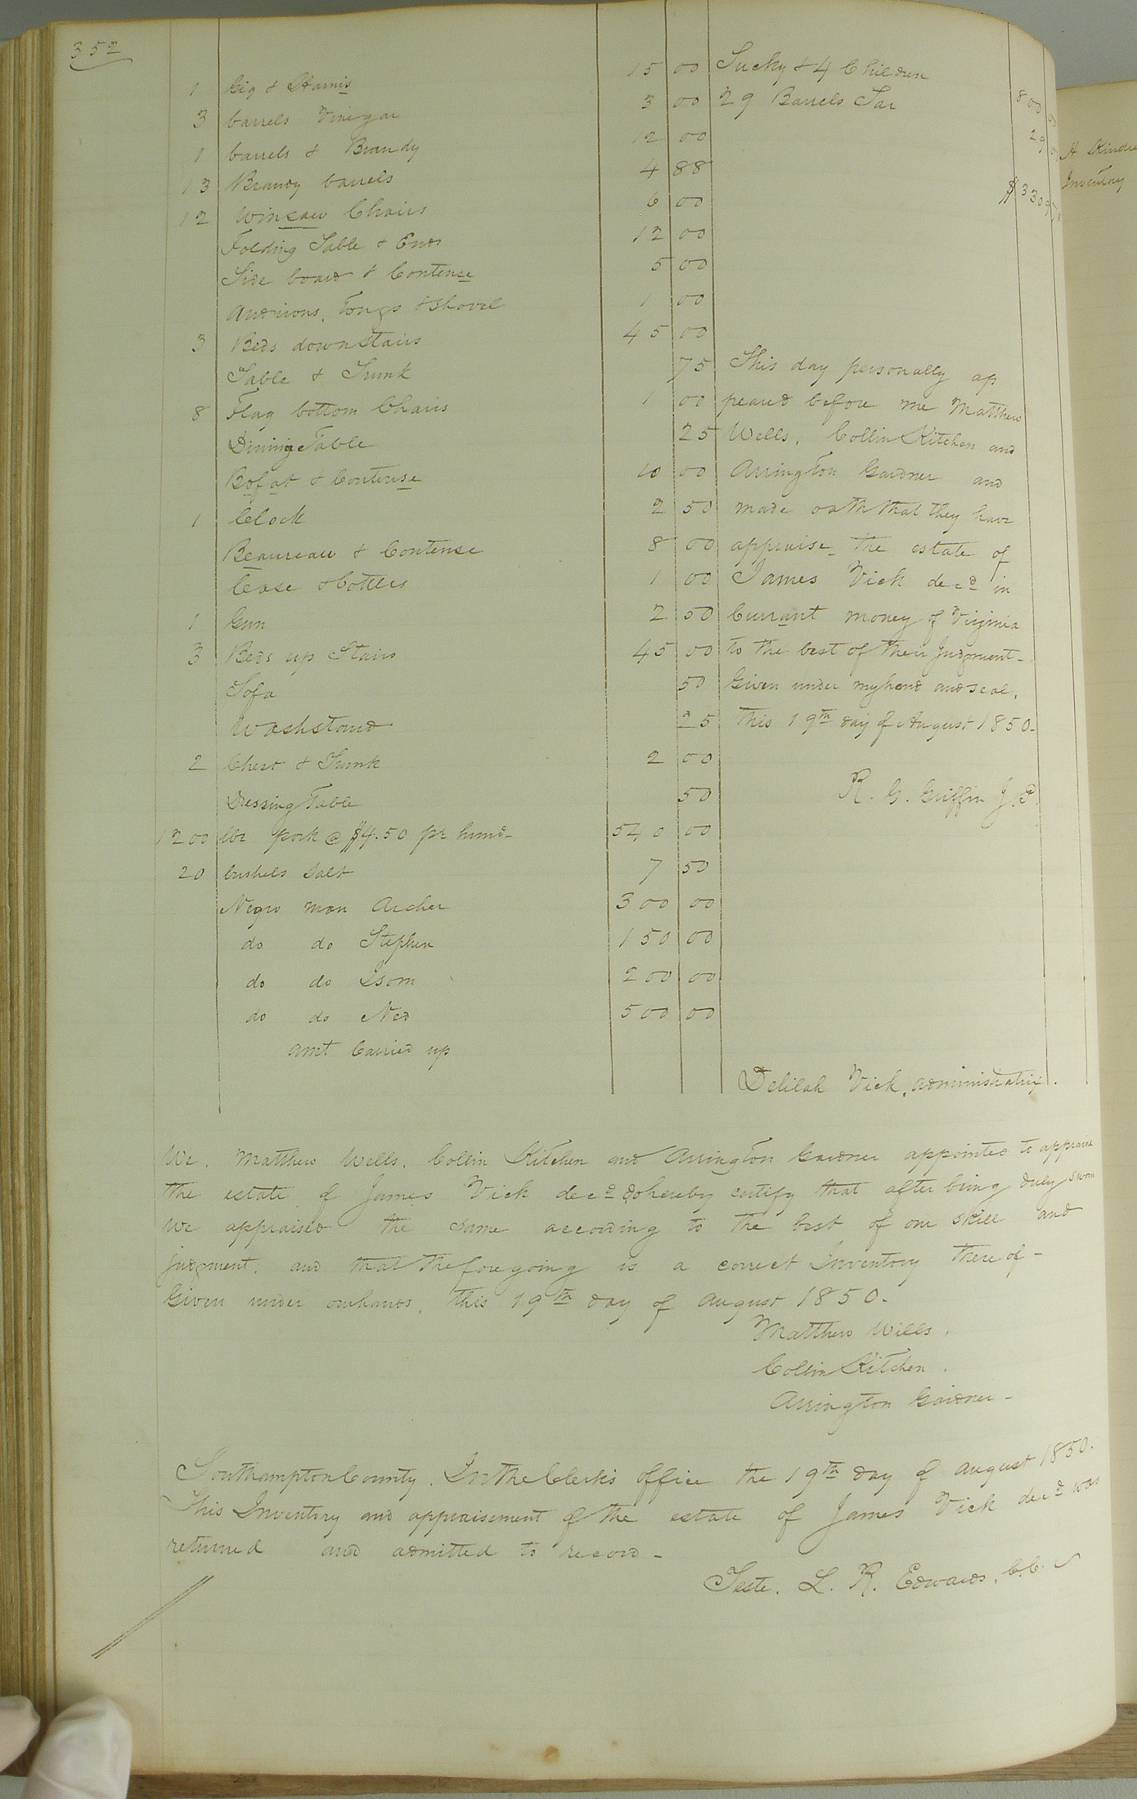 352
1 Gig & Harnis 15 00
3 barrels Vinegar 3 00
1 barrels & Brandy 12 00
13 Brandy barrels 4 88
12 Winsaw Chairs 6 00
Folding Table & Ends 12 00
Side board & Contense 5 00
Andirons, Tongs & Shovel 1 00
3 Beds down Stairs 45 00
Table & Trunk 75
8 Flag bottom Chairs 1 00
Dining Table 25
Bofat & Contense 10 00
1 Clock 2 50
Beaureau & Contense 8 00
Case & bottles 1 00
1 Gun 2 50
3 Beds up Stairs 45 00
Sofa 50
Washstand 25
2 Chest & Trunk 2 00
Dressing Table 50
1200 lbs pork @ $4.50 pr hund- 54,0 00
20 bushels Salt 7 50
Negro man Archer 300 00
do do Stephen 150 00
do do Isom 200 00
do do Ned 500 00
amt Carried up
Sucky & 4 Children 800 00
29 Barrels Tar 29
$3309
This day personally ap
peared before me Matthew
Wells, Collin Kitchen and
Arrington Gardner and
made oath that they have
appraise the estate of
James Vick decd in
Currant money of Virginia
to the best of their Judgment-
Given under my hand and seal,
this 19th day of August 1850-
R. G. Griffin J.P.
Delilah Vick, administratrix.
We, Matthew Wells, Collin Kitchen and Arrington Gardner appointed to appraise
the estate of James Vick decd do hereby certify that after being duly sworn
We appraised the same according to the best of our skill and
judgment, and that the foregoing is a correct Inventory thereof-
Given under our hands, this 19th day of August 1850-
Matthew Wills,
Collin Kitchen.
Arrington Gardner-
Southampton County. In the Clerk's office the 19th day of August 1850.
This Inventory and appraisement of the estate of James Vick decd was
returned and admitted to record-
Teste. L. R. Edwards, C.C.
Inventory